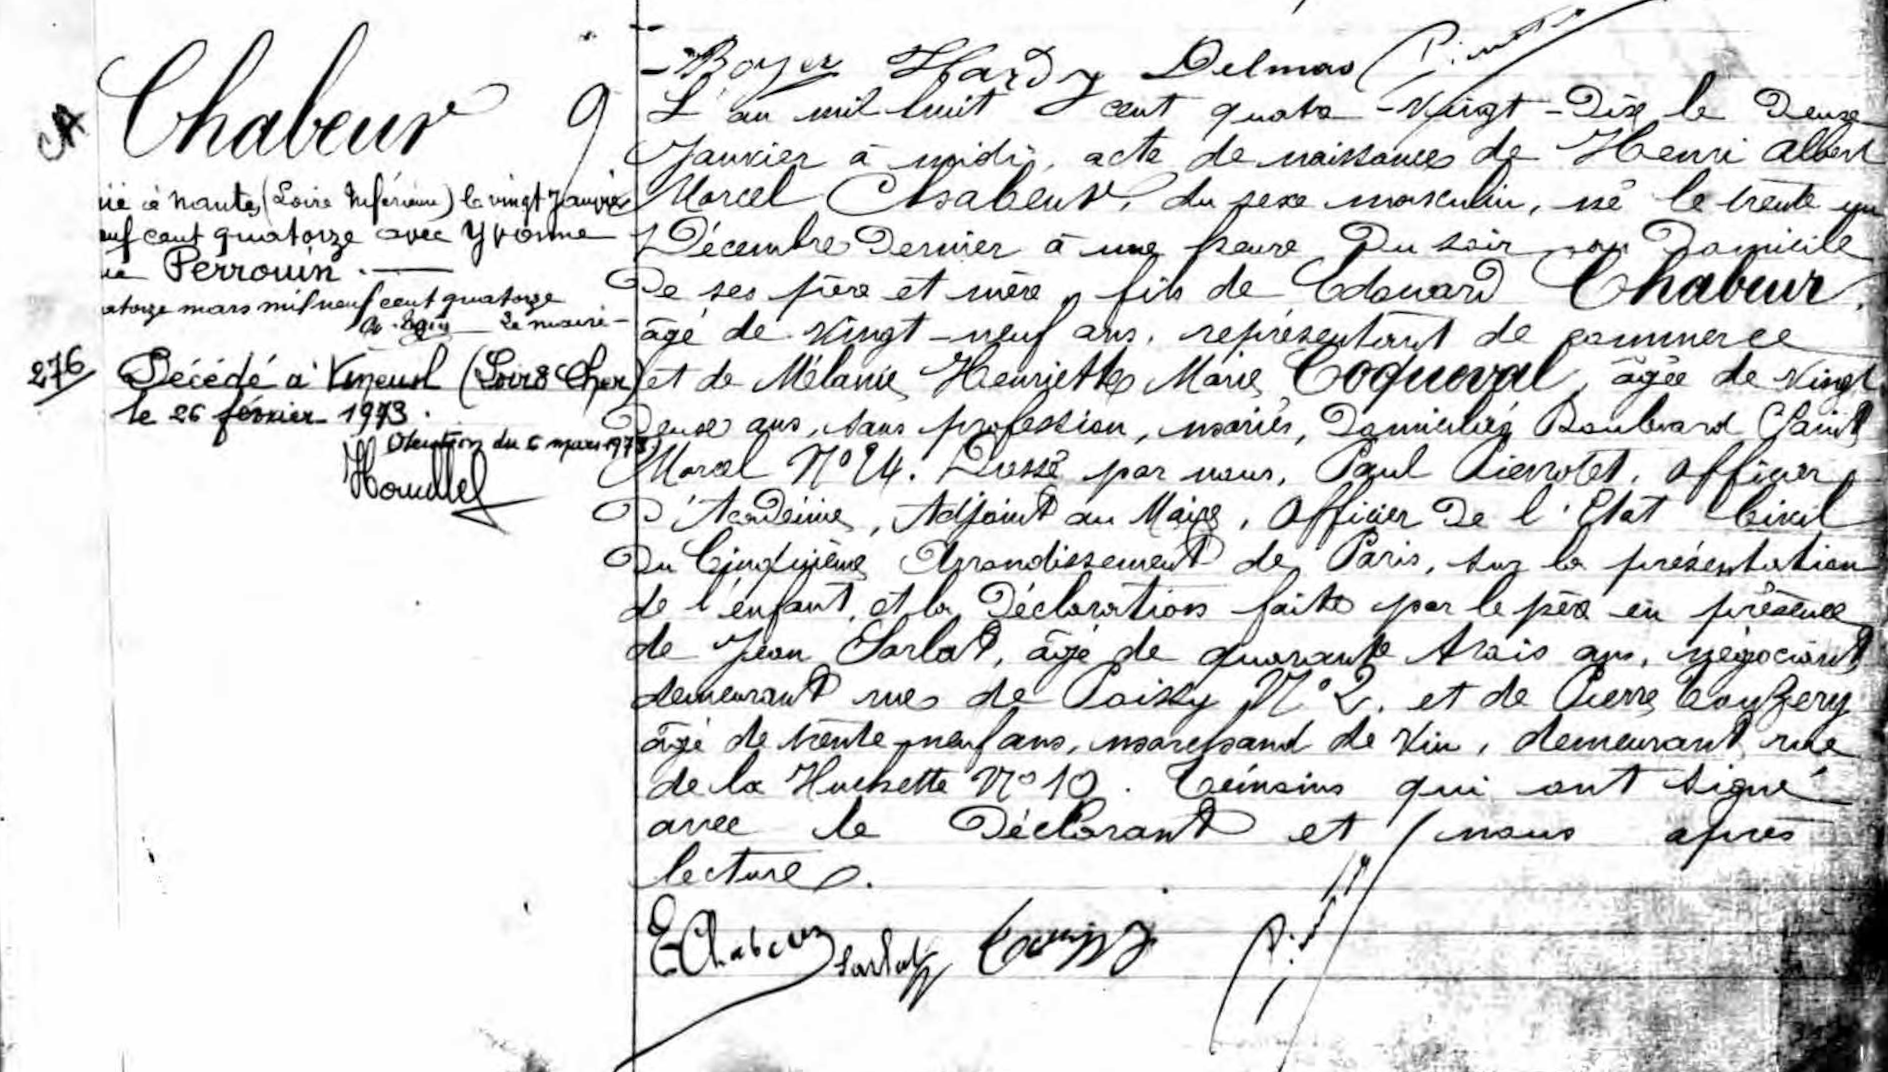 Chabeur 9
ié à Nantes (Loire Inférieure) le vingt Janvier
euf cent quatorze avec Yvonne
Perrouin.
atorze mars mil neuf cent quatorze
Le maire
276
Décédé à Vineuil (Loir & Cher)
le 26 février 1973.
du 5 mars 1973
Boyer Hardy Delmas
L'an mil huit cent quatre-vingt-dix le Deux
Janvier à midi, acte de naissance de Henri Albert
Marcel Chabeur, du sexe masculin, né le trente un
Décembre Dernier à une heure Du soir au Domicile
De ses père et mère, fils de Edouard Chabeur,
âgé de vingt-neuf ans, représentant de commerce
et de Mélanie Henriette Marie Coqueval, âgée de vingt
Deux ans, sans profession, mariés, Domiciliés Boulevard Saint
Marcel N° 24. Dressé par nous, Paul Pierrotet, officier
D'Académie, Adjoint au Maire, officier De l'Etat Civil
Du Cinquième Arrondissement de Paris, sur la présentation
de l'enfant, et la Déclaration faite par le père en présence
de Jean Sarlat, âgé de quarante trois ans, négociant
demeurant rue de Poissy N° 2, et de Pierre
âgé de trente-neuf ans, marchand de vin, demeurant rue
de la Huchette N° 10. Témoins qui ont signé
avec le Déclarant et nous après
lecture.
E Chabeur Sarlat